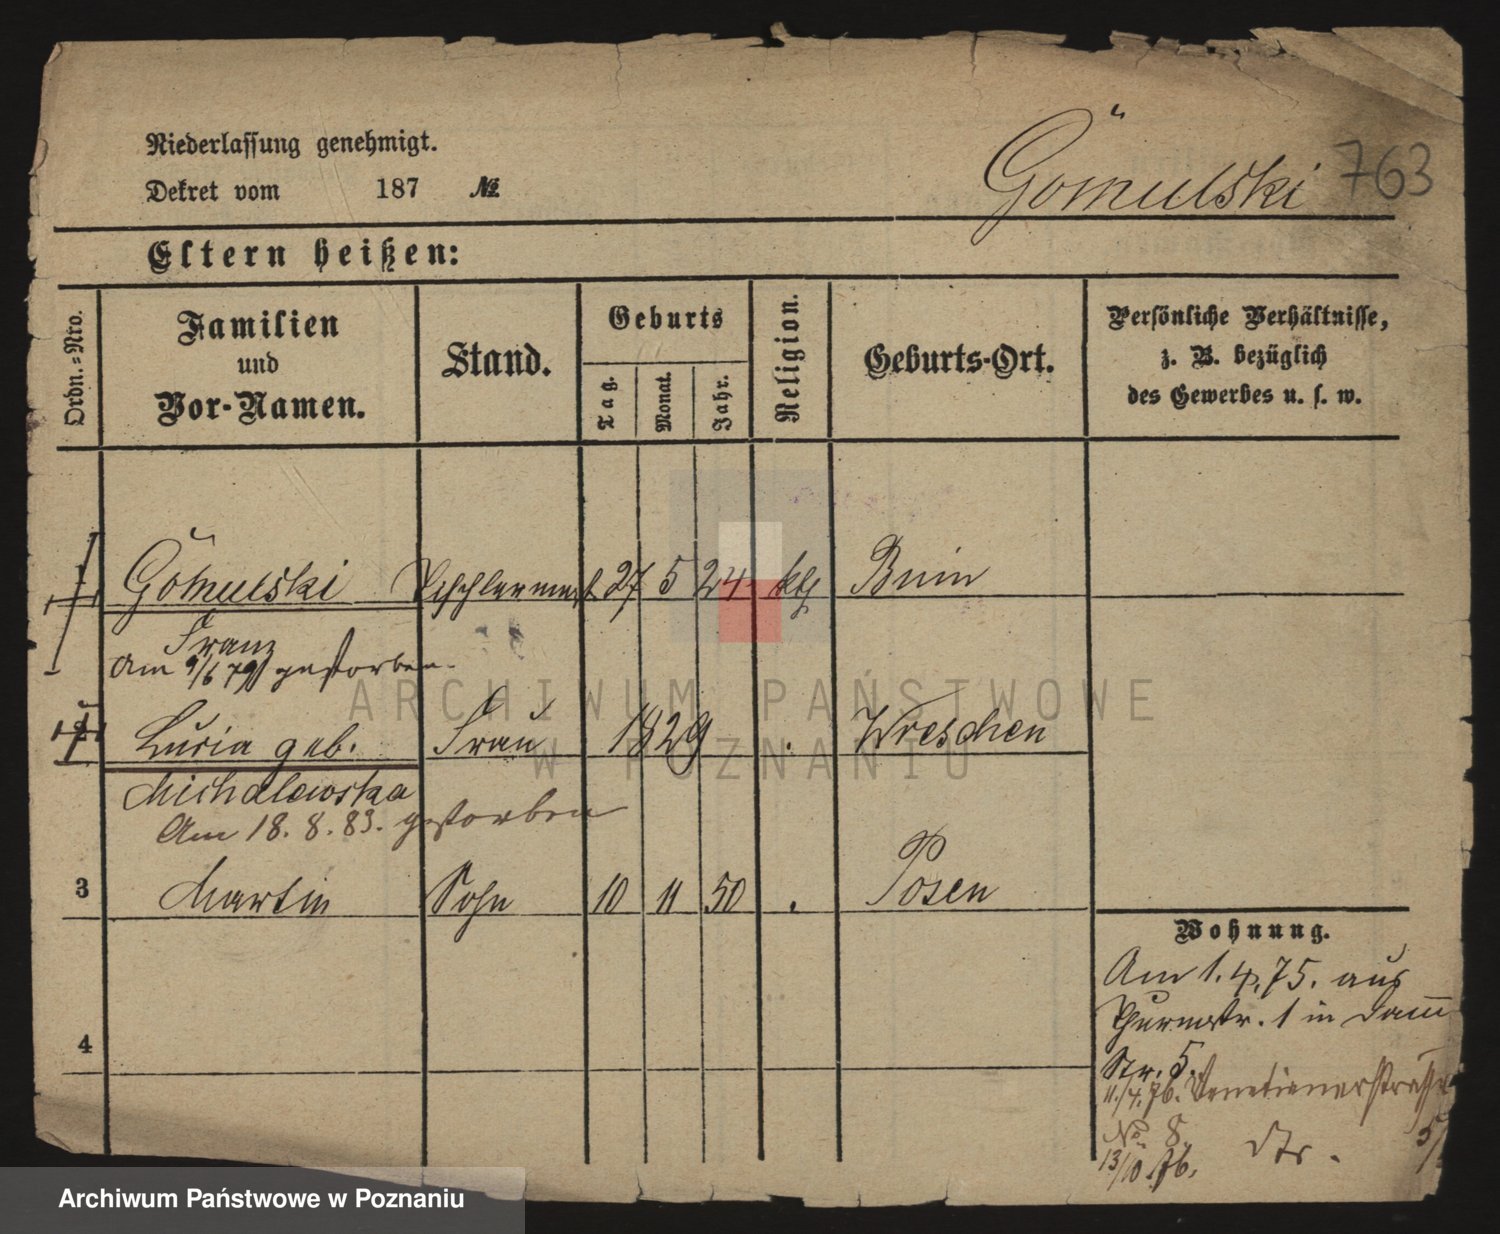 Niederlassung genehmigt.
Dekret vom 187 №
Gömulski 763
Eltern heißen:
Ordn.=Nro.
Familien
und
Vor-Namen.
Stand.
Geburts
Tag.
Monat.
Jahr.
Religion.
Geburts-Ort.
Persönliche Verhältnisse,
z. B. bezüglich
des Gewerbes u. s. w.
1 Gömulski Tischlermest 27 5 24 kth Bnin
Franz
am 9/6 79 gestorben.
ARCHIWUM PAŃSTWOWE
W POZNANIU
2 Lucia geb. Frau 1829 . Wreschen
Michalewska
Am 18. 8. 83. gestorben
3 Martin Sohn 10 11 50 . Posen
4
Wohnung.
Am 1. 4. 75. aus
Thurmstr. 1 in Damm
Str. 5.
11./4. 76. Venetianerstrasse
No. 8. 5/
13/10. 76. dto.
Archiwum Państwowe w Poznaniu